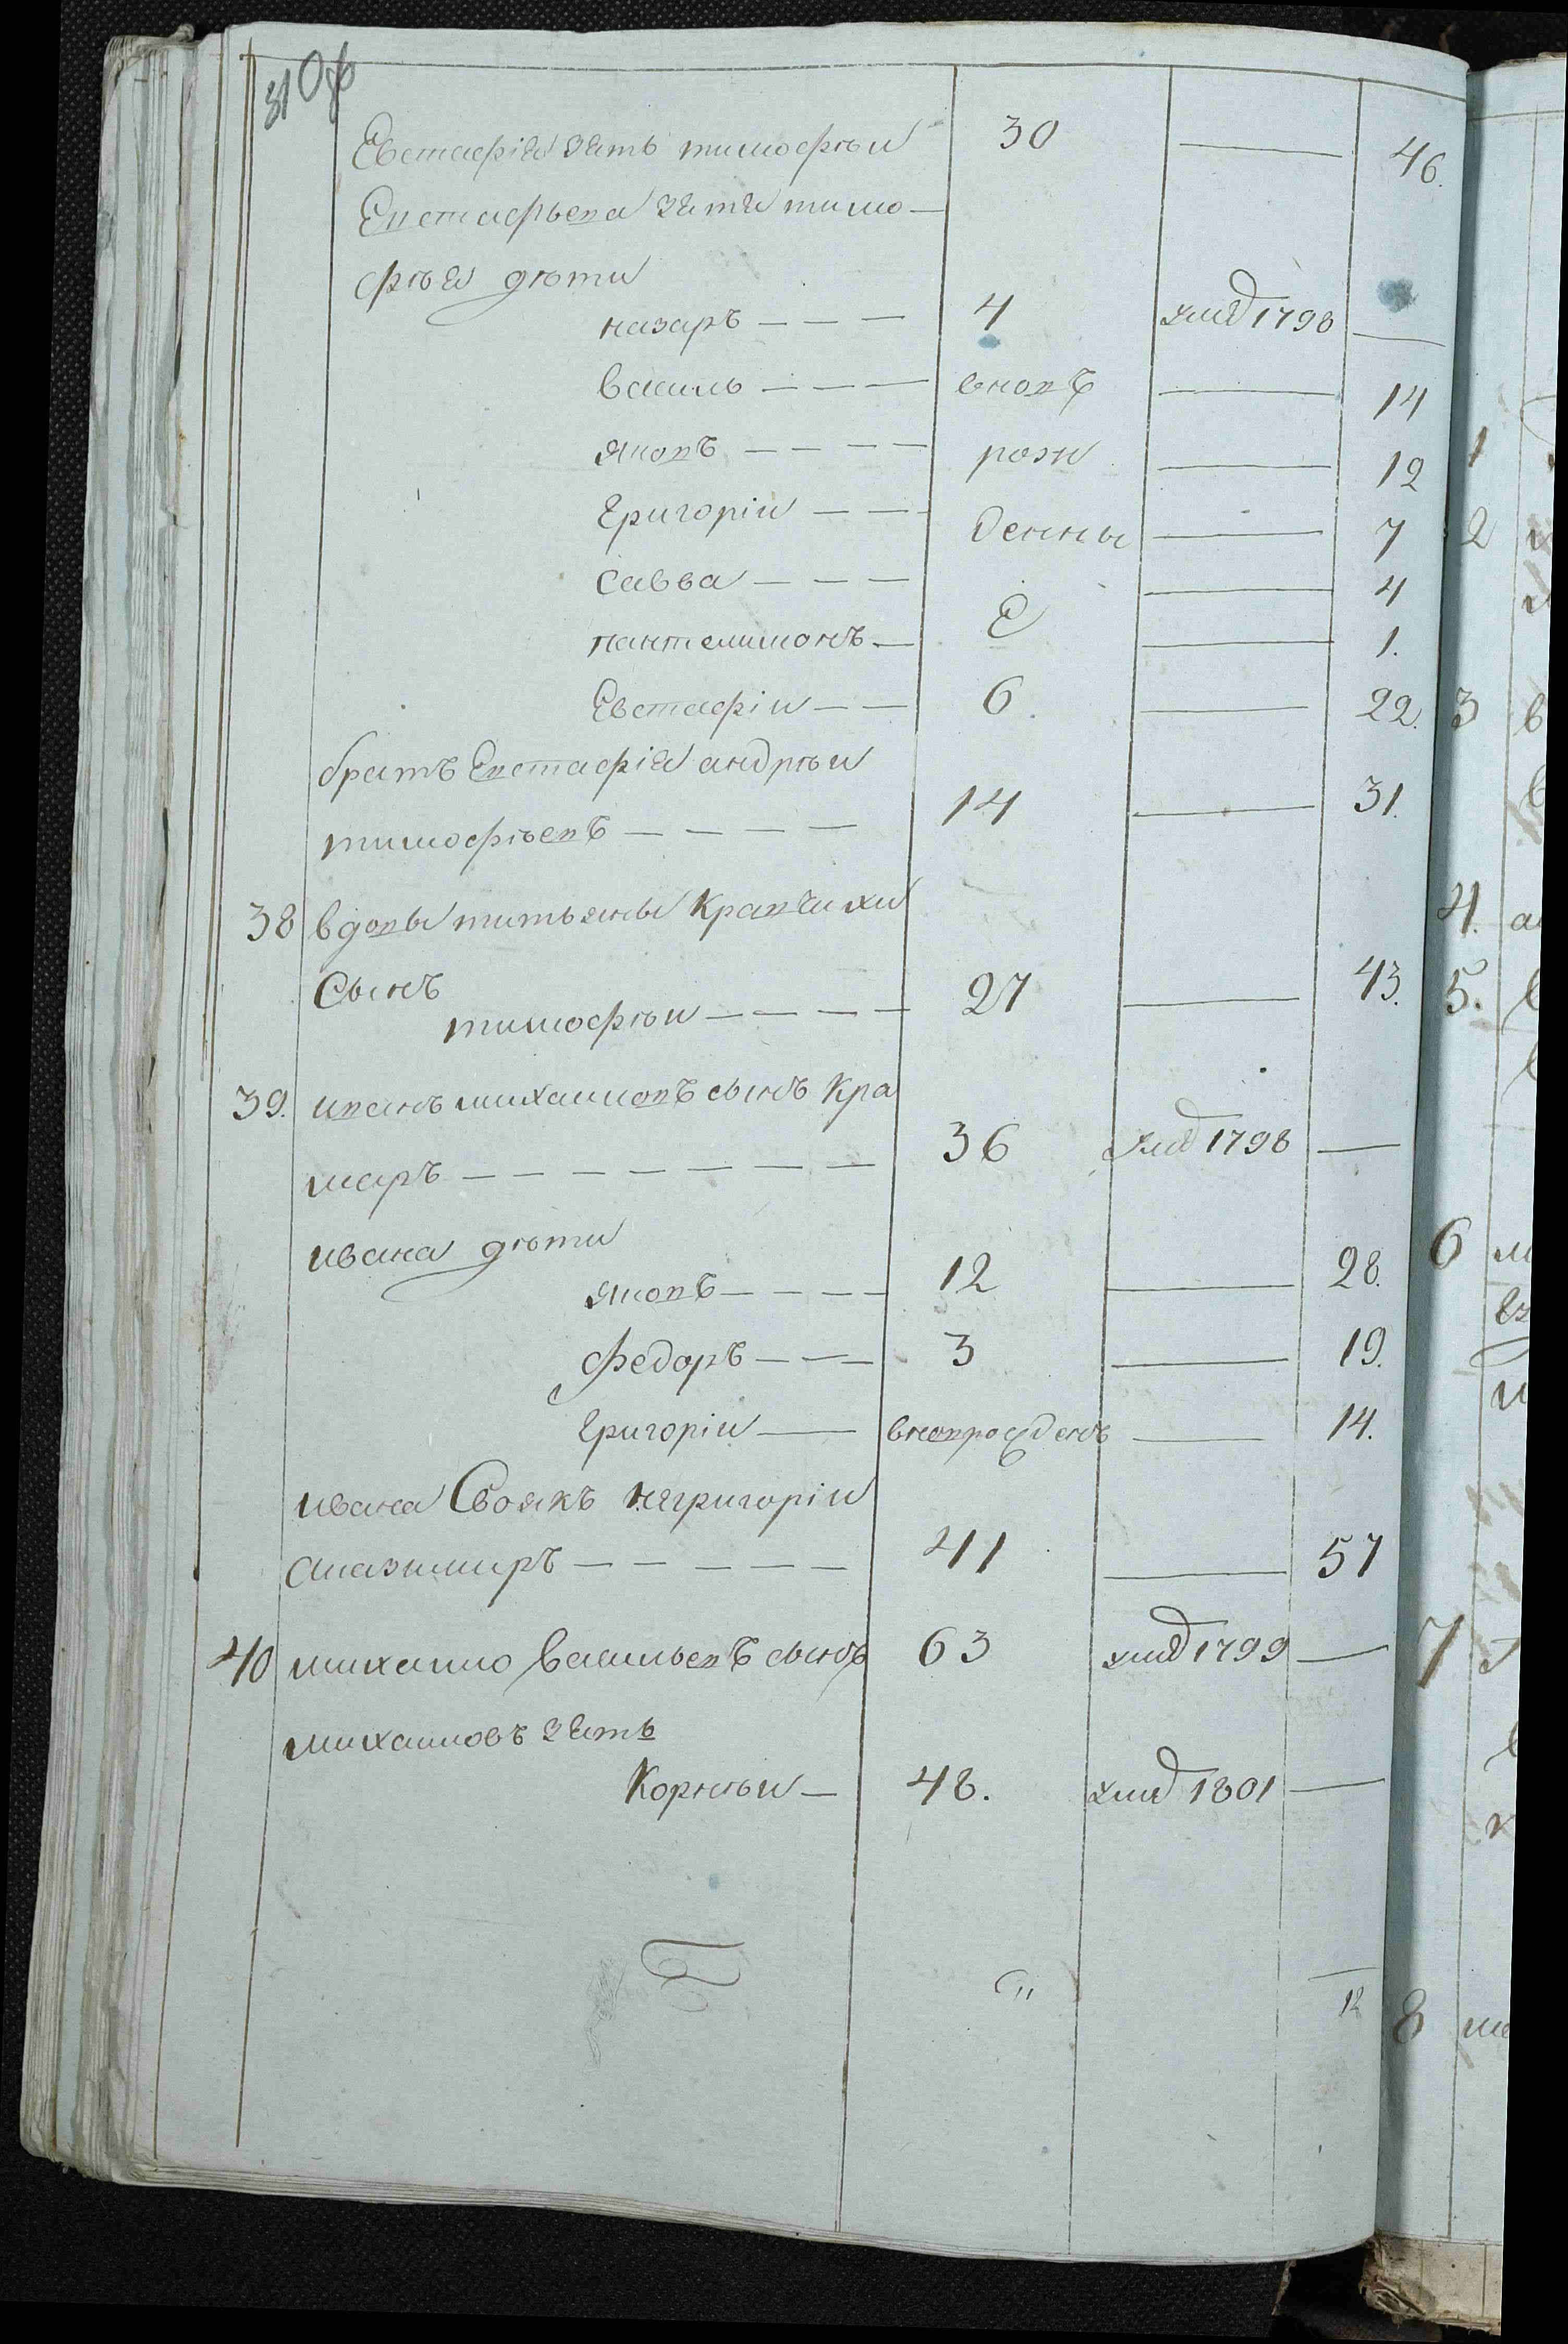 31 Об
Евстафія зять тимофѣи 30 — 46.
Евстафьева зятя тимо-
фѣя дѣти
назаръ — — — 4 умѣ 1798 —
василь — — — вновъ — 14
яковъ — — — рож — 12
Григоріи — — — денны — 7
савва — — — — 4
пантелимонъ — е — 1.
Евстафіи — — 6. — 22.
братъ Евстафія андрѣи
тимофѣевъ — — — — 14 — 31.
38 вдовы титьяны Кравчихи
Сынъ
тимофѣи — — — — 27 — 43.
39. иванъ михаиловъ сынъ Кра
маръ — — — — — — — 36 умѣ 1798 —
ивана дѣти
яковъ — — — — 12 — 28.
федоръ — — — 3 — 19.
Григоріи — вноврожденъ — 14.
ивана Своякъ григоріи
— — — — — 41 — 57
40 михаило васильевъ сынъ 63 умѣ 1799 —
михаиловъ зять
Корнѣи — 48. умѣ 1801 —
12